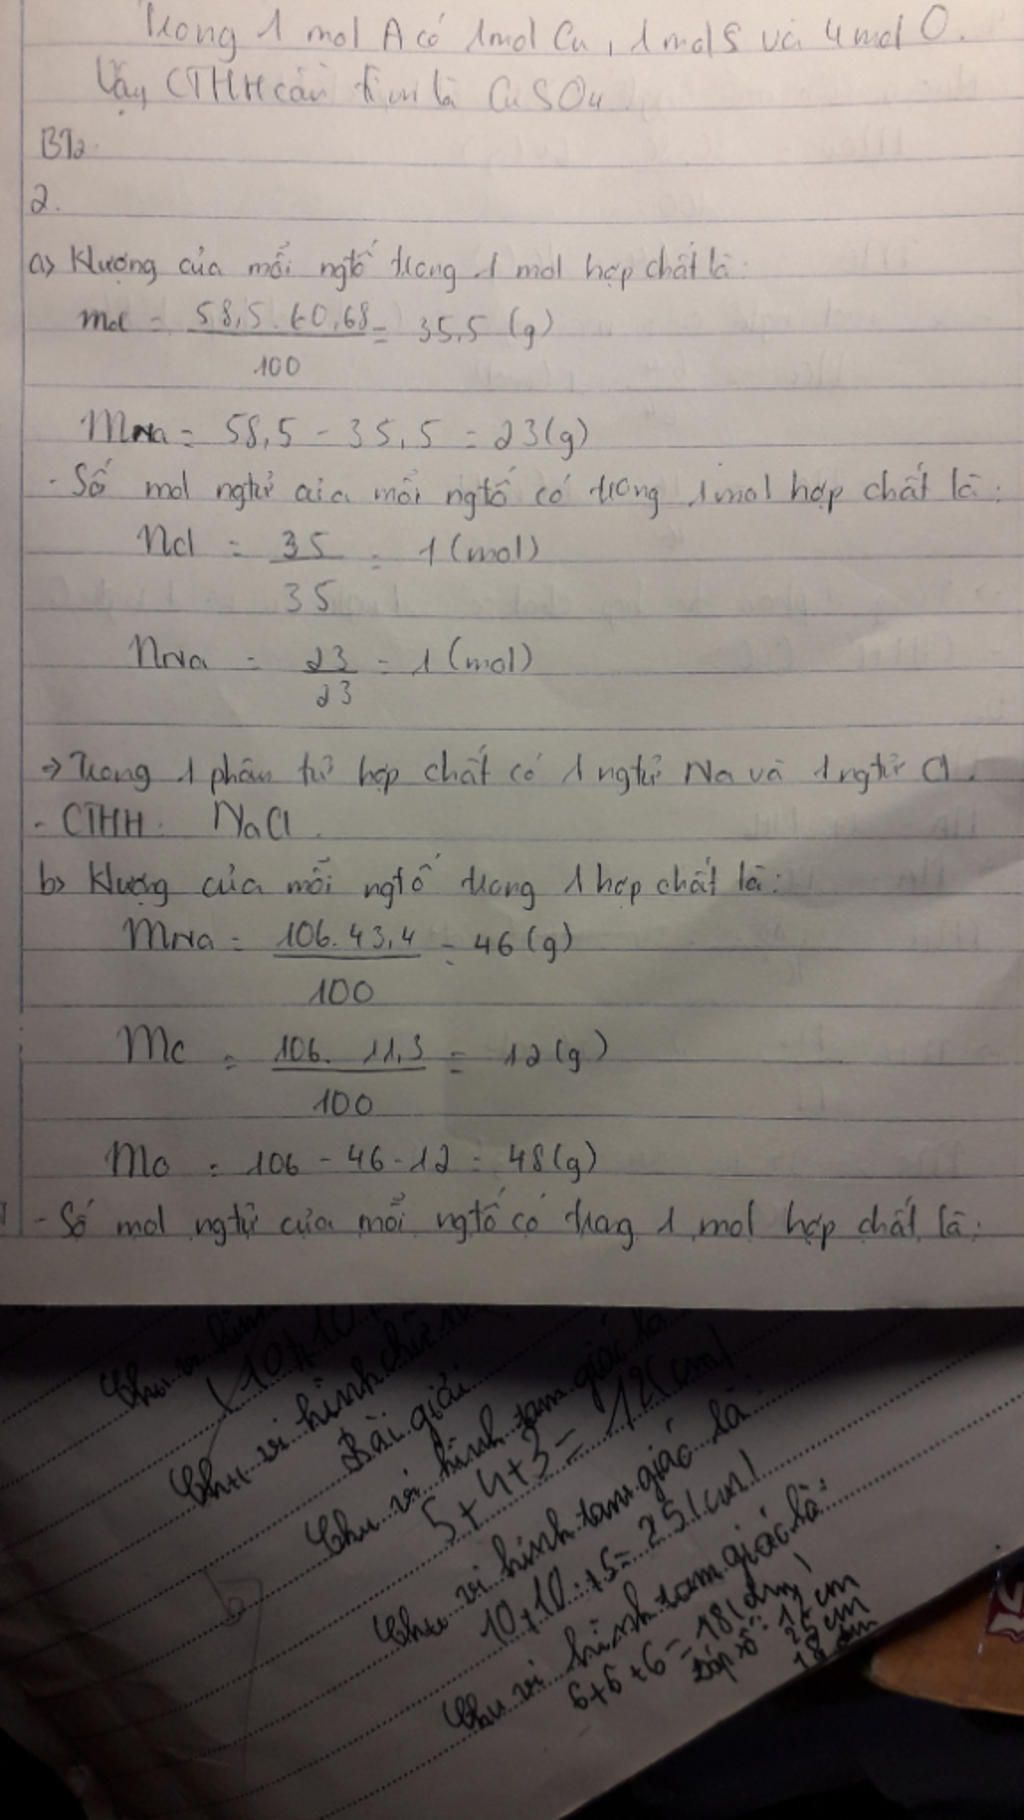 Trong 1 mol A có 1mol Cu, 1 mol S và 4 mol O.
Vậy CTHH cần tìm là CuSO4
BT2.
2.
a> Klượng của mỗi ngtố trong 1 mol hợp chất là:
mcl = 58,5.60,68 = 35,5 (g)
100
MNa = 58,5 - 35,5 = 23(g)
- Số mol ngtử của mỗi ngtố có trong 1mol hợp chất là:
Ncl = 35 = 1 (mol)
35
NNa = 23 = 1 (mol)
23
→ Trong 1 phân tử hợp chất có 1 ngtử Na và 1 ngtử Cl.
- CTHH: NaCl.
b> Klượng của mỗi ngtố trong 1 hợp chất là:
MNa = 106.43,4 = 46 (g)
100
Mc = 106. 11,3 = 12 (g)
100
Mo = 106 - 46 - 12 = 48(g)
- Số mol ngtử của mỗi ngtố có trong 1 mol hợp chất là:
Chu vi hình
(10+10
Chu vi hình chữ
Bài giải
Chu vi hình tam giác là
5+4+3= 12(cm)
Chu vi hình tam giác là:
10+10+5= 25(cm)
Chu vi hình tam giác là:
6+6+6=18(dm)
Đáp số: 12 cm
25 cm
18 dm